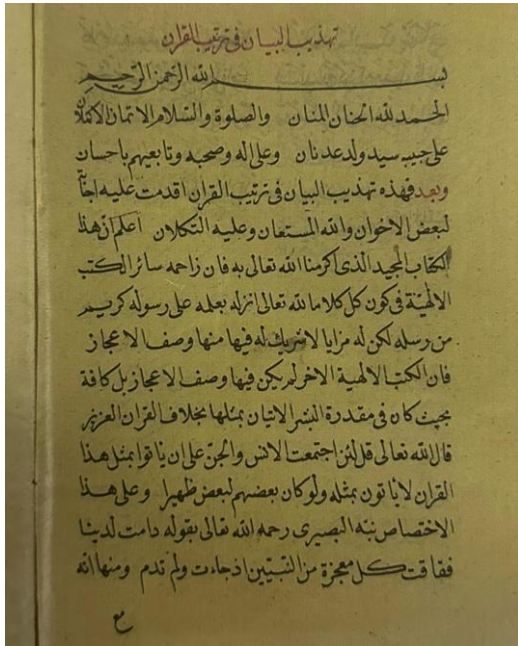 تهذيب البيان فى ترتيب القران
بسم الله الرحمن الرحيم
الحمد لله الحنان المنان والصلوة والسلام الاتمان الاكملان
على حبيبه سيد ولد عدنان وعلى اله وصحبه وتابعيهم باحسان
وبعد فهذه تهذيب البيان فى ترتيب القران اقدمت عليه اجابة
لبعض الاخوان والله المستعان وعليه التكلان اعلم ان هذا
الكتاب المجيد الذى اكرمنا الله تعالى به فان زاحمه سائر الكتب
الالهية فى كون كل كلاما لله تعالى انزله بعلمه على رسوله كريم
من رسله لكن له مزايا لا شريك له فيها منها وصف الاعجاز
فان الكتب الالهية الاخر لم يكن فيها وصف الاعجاز بل كافة
بحيث كان فى مقدرة البشر الاتيان بمثلها بخلاف القران العزيز
قال الله تعالى قل لئن اجتمعت الانس والجن على ان ياتوا بمثل هذا
القران لا ياتون بمثله ولو كان بعضهم لبعض ظهيرا وعلى هذا
الاختصاص نبه البصيرى رحمه الله تعالى بقوله دامت لدينا
ففاقت كل معجزة من النبيين اذ جاءت ولم تدم ومنها انه
مع